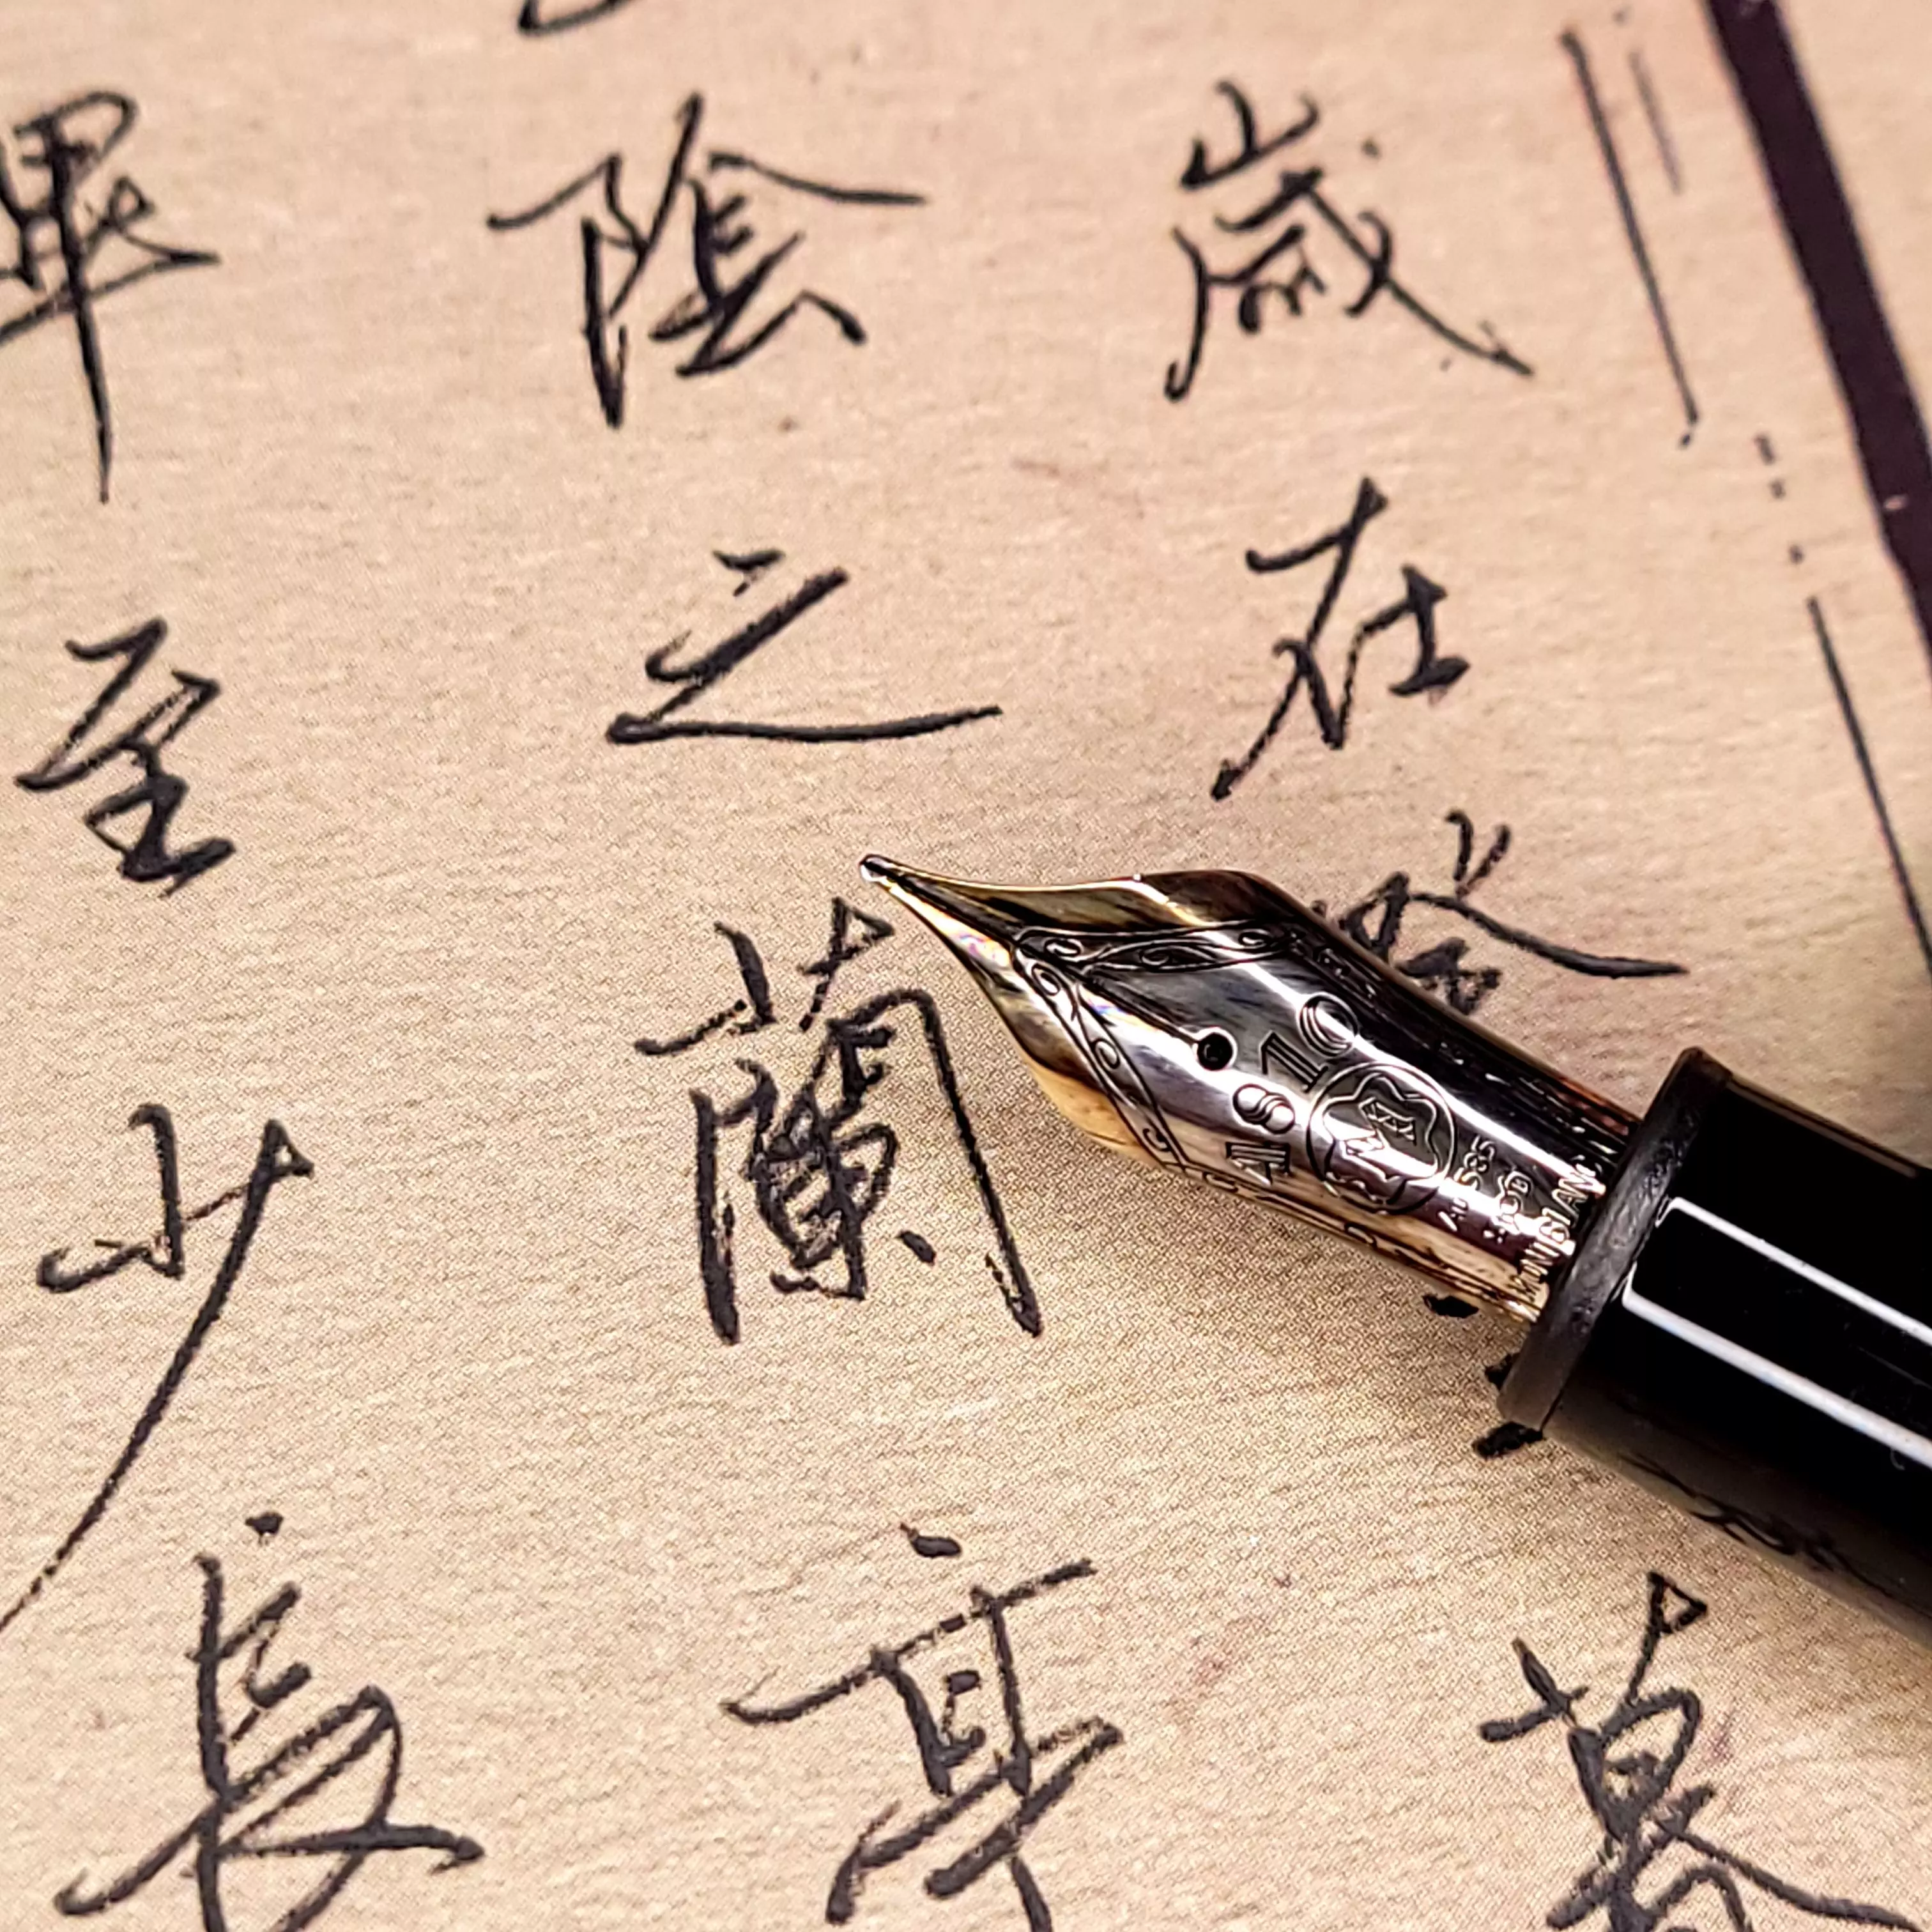 歲在癸暮
陰之蘭亭
畢至少長
4810
M
Au585
MONTBLANC